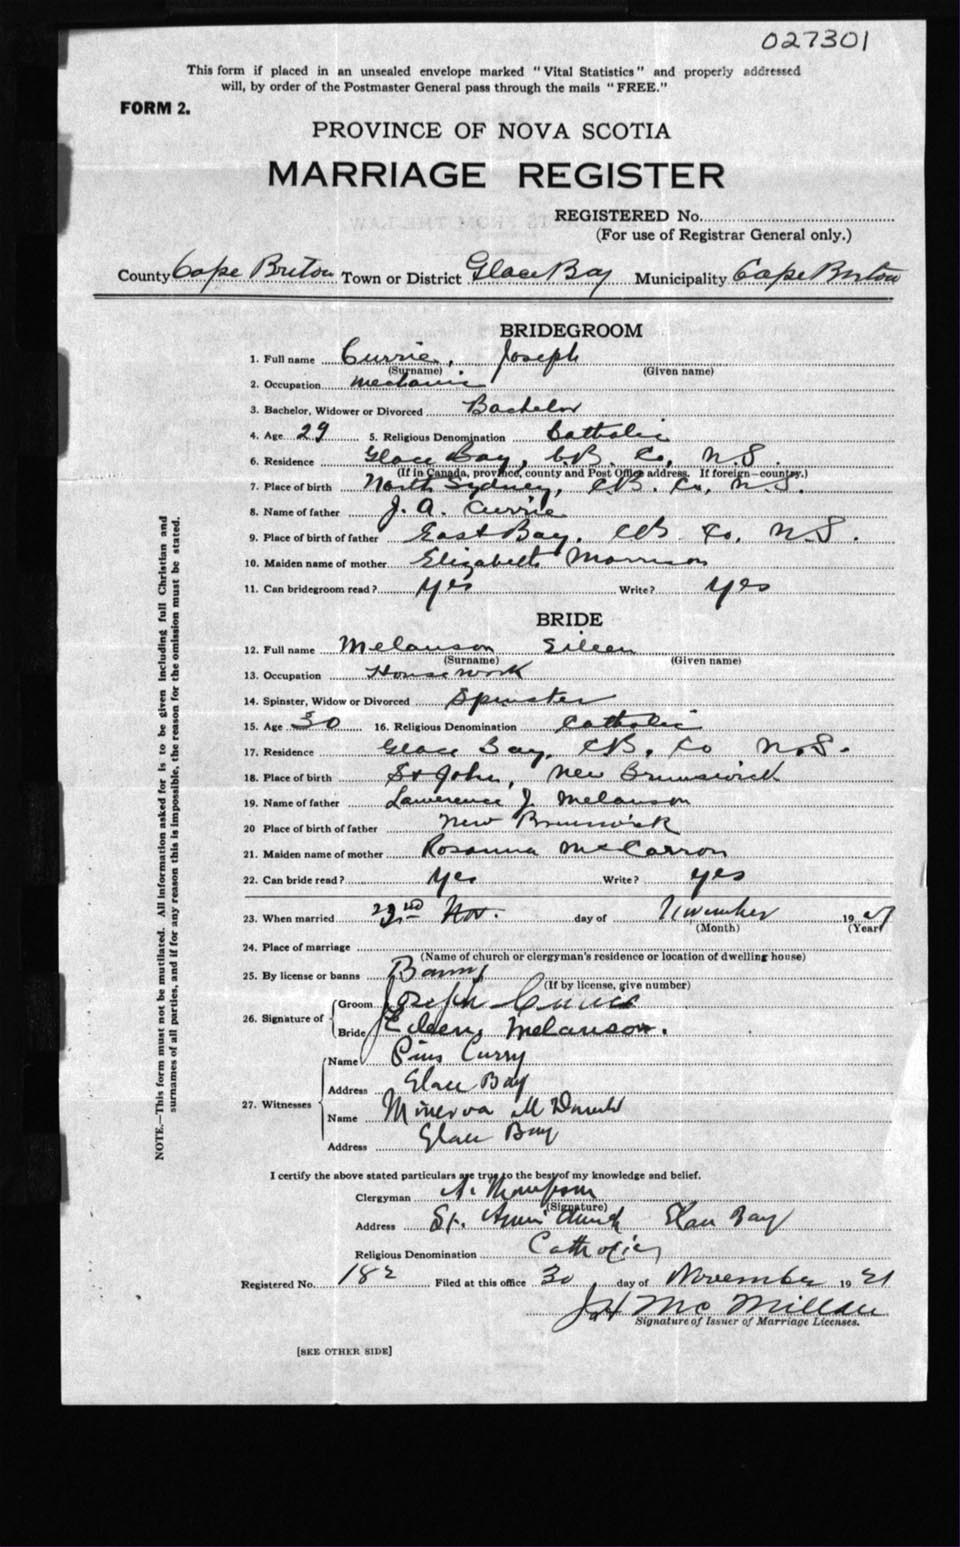 027301
This form if placed in an unsealed envelope marked "Vital Statistics" and properly addressed
will, by order of the Postmaster General pass through the mails "FREE."
FORM 2.
PROVINCE OF NOVA SCOTIA
MARRIAGE REGISTER
REGISTERED No.
(For use of Registrar General only.)
County Cape Breton Town or District Glace Bay Municipality Cape Breton
BRIDEGROOM
1. Full name Currie, Joseph
(Surname) (Given name)
2. Occupation mechanic
3. Bachelor, Widower or Divorced Bachelor
4. Age 29 5. Religious Denomination Catholic
6. Residence Glace Bay, C.B. Co, N.S.
(If in Canada, province, county and Post Office address. If foreign—country.)
7. Place of birth North Sydney, C.B. Co, N.S.
8. Name of father J. A. Currie
9. Place of birth of father East Bay, C.B. Co, N.S.
10. Maiden name of mother Elizabeth Morrison
11. Can bridegroom read? yes Write? yes
BRIDE
12. Full name Melanson Eileen
(Surname) (Given name)
13. Occupation Housework
14. Spinster, Widow or Divorced Spinster
15. Age 30 16. Religious Denomination Catholic
17. Residence Glace Bay, C.B. Co N.S.
18. Place of birth St John, New Brunswick
19. Name of father Lawerence J. Melanson
20 Place of birth of father New Brunswick
21. Maiden name of mother Rosanna McCarron
22. Can bride read? yes Write? yes
23. When married Nov. day of November 19
(Month) (Year)
24. Place of marriage
(Name of church or clergyman's residence or location of dwelling house)
25. By license or banns Banns
(If by license, give number)
26. Signature of Groom Joseph Currie
Bride Eileen Melanson.
27. Witnesses Name Pius Curry
Address Glace Bay
Name Minerva McDonald
Address Glace Bay
I certify the above stated particulars are true to the best of my knowledge and belief.
Clergyman A. Thompson
(Signature)
Address St. Church Glace Bay
Religious Denomination Catholic
Registered No. 182 Filed at this office 30 day of November 19 21
J H McMillan
Signature of Issuer of Marriage Licenses.
[SEE OTHER SIDE]
NOTE.—This form must not be mutilated. All information asked for is to be given including full Christian and
surnames of all parties, and if for any reason this is impossible, the reason for the omission must be stated.